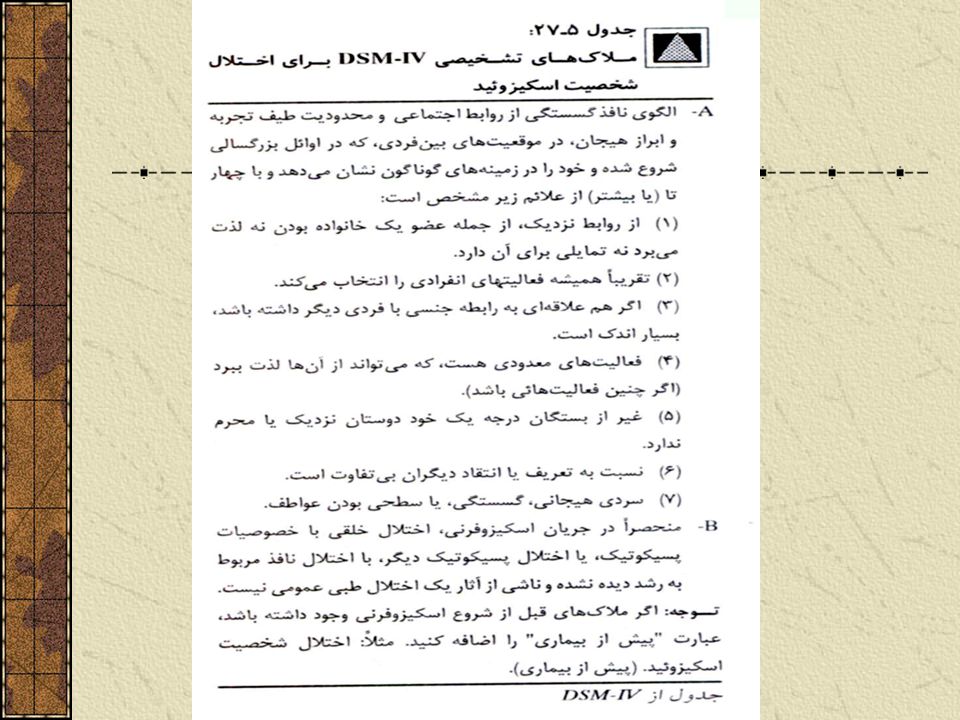 جدول ۵ـ۲۷:
مـلاک‌هـای تشـخیصی DSM-IV بـرای اخـتلال
شخصیت اسکیزوئید
A- الگوی نافذ گسستگی از روابط اجتماعی و محدودیت طیف تجربه
و ابراز هیجان، در موقعیت‌های بین‌فردی، که در اوائل بزرگسالی
شروع شده و خود را در زمینه‌های گوناگون نشان می‌دهد و با چهار
تا (یا بیشتر) از علائم زیر مشخص است:
(۱) از روابط نزدیک، از جمله عضو یک خانواده بودن نه لذت
می‌برد نه تمایلی برای آن دارد.
(۲) تقریباً همیشه فعالیتهای انفرادی را انتخاب می‌کند.
(۳) اگر هم علاقه‌ای به رابطه جنسی با فردی دیگر داشته باشد،
بسیار اندک است.
(۴) فعالیت‌های معدودی هست، که می‌تواند از آن‌ها لذت ببرد
(اگر چنین فعالیت‌هائی باشد).
(۵) غیر از بستگان درجه یک خود دوستان نزدیک یا محرم
ندارد.
(۶) نسبت به تعریف یا انتقاد دیگران بی‌تفاوت است.
(۷) سردی هیجانی، گسستگی، یا سطحی بودن عواطف.
B- منحصراً در جریان اسکیزوفرنی، اختلال خلقی با خصوصیات
پسیکوتیک، یا اختلال پسیکوتیک دیگر، با اختلال نافذ مربوط
به رشد دیده نشده و ناشی از آثار یک اختلال طبی عمومی نیست.
تـوجه: اگر ملاک‌های قبل از شروع اسکیزوفرنی وجود داشته باشد،
عبارت "پیش از بیماری" را اضافه کنید. مثلاً: اختلال شخصیت
اسکیزوئید. (پیش از بیماری).
جدول از DSM-IV